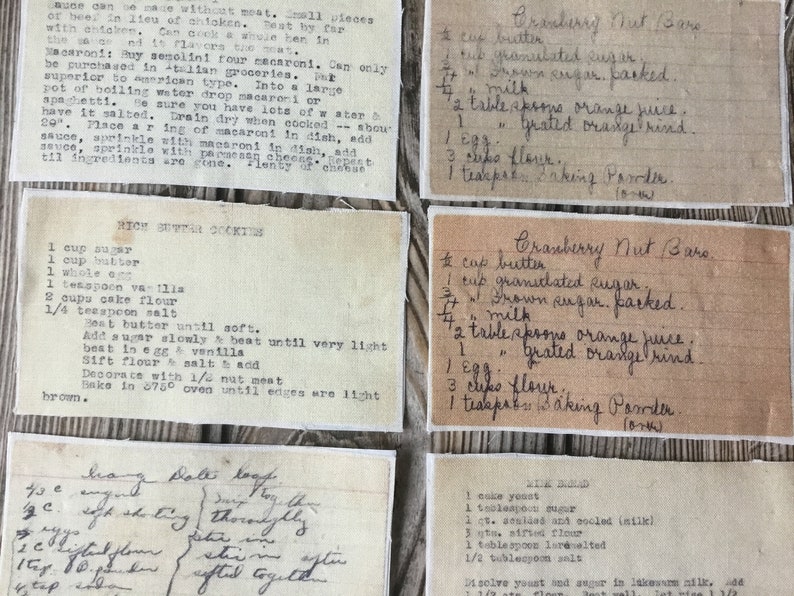 sauce can be made without meat. Small pieces
of beef in lieu of chicken. Best by far
with chicken. Can cook a whole hen in
the sauce and it flavors the meat.
Macaroni: Buy semolini four macaroni. Can only
be purchased in Italian groceries. Far
superior to american type. Into a large
pot of boiling water drop macaroni or
spaghetti. Be sure you have lots of w ater &
have it salted. Drain dry when cooked -- abou
20". Place a r ing of macaroni in dish, add
sauce, sprinkle with macaroni in dish, add
sauce, sprinkle with parmesan cheese. Repeat
til ingredients are gone. Plenty of cheese
Cranberry Nut Bars
1/2 cup butter
1 cup granulated sugar.
3/4 " Brown sugar. packed.
1/4 " milk
2 tablespoons orange juice.
1 " grated orange rind.
1 Egg.
3 cups flour.
1 teaspoon Baking Powder.
(over)
RICH BUTTER COOKIES
1 cup sugar
1 cup butter
1 whole egg
1 teaspoon vanilla
2 cups cake flour
1/4 teaspoon salt
Beat butter until soft.
Add sugar slowly & beat until very light
beat in egg & vanilla
Sift flour & salt & add
Decorate with 1/2 nut meat
Bake in 375° oven until edges are light
brown.
Cranberry Nut Bars.
1/2 cup butter
1 cup granulated sugar.
3/4 " Brown sugar. packed.
1/4 " milk
2 tablespoons orange juice.
1 " grated orange rind.
1 Egg.
3 cups flour.
1 teaspoon Baking Powder.
(over)
Date loaf
2/3 C sugar
1/2 C. shortning
mix together
thoroughly
eggs
stir in
2 C sifted flour
1 tsp. B. powder
tsp soda
stir in after
sifted together
MILK BREAD
1 cake yeast
1 tablespoon sugar
1 qt. scalded and cooled (milk)
3 qts. sifted flour
1 tablespoon lard melted
1/2 tablespoon salt
Disolve yeast and sugar in lukewarm milk. Add
1 1/2 qts. flour. Beat well. Let rise 1 1/2